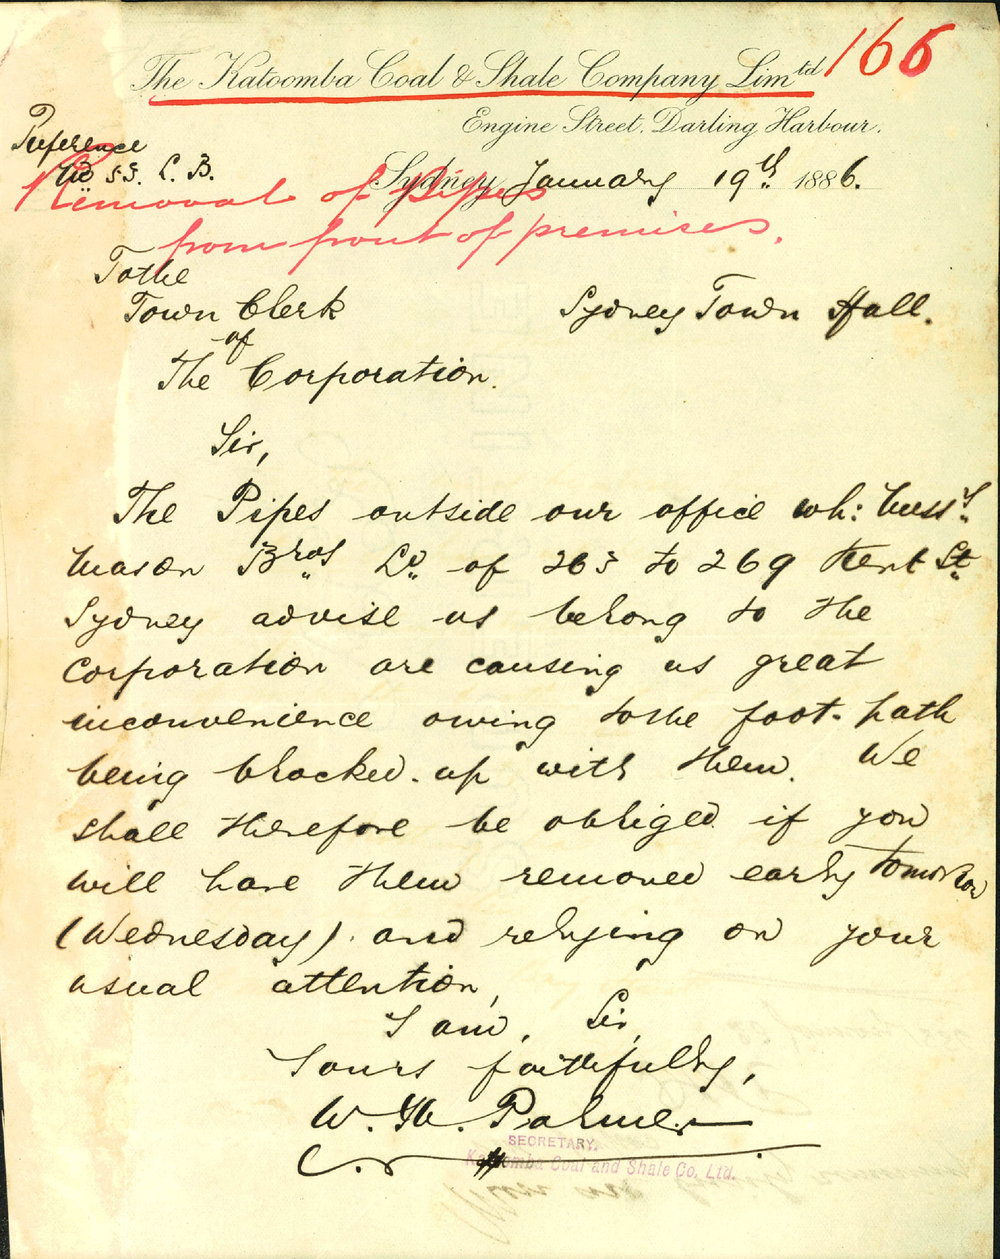 The Katoomba Coal & Shale Company Limtd
166
Engine Street. Darling Harbour.
Reference
No 55. L. B.
Sydney January 19th 1886.
Removal of Pipes
from front of premises.
To the
Town Clerk
Sydney Town Hall.
of
The Corporation.
Sir,
The Pipes outside our office wh: Messrs
Mason Bros Ld of 263 to 269 Kent St
Sydney advise us belong to the
Corporation are causing us great
inconvenience owing to the foot-path
being blocked-up with them. We
shall therefore be obliged if you
will have them removed early tomorrow
(Wednesday). and relying on your
usual attention,
I am, Sir,
Yours faithfully,
W. H. Palmer
SECRETARY.
Katoomba Coal and Shale Co, Ltd.